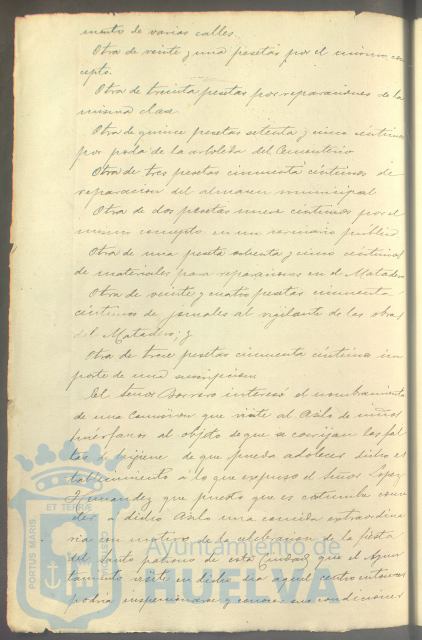 miento de varias calles.
Otra de veinte y una pesetas por el mismo con
cepto.
Otra de treinta pesetas por reparaciones de la
misma clase
Otra de quince pesetas setenta y cinco céntimos
por poda de la arboleda del Cementerio
Otra de tres pesetas cincuenta céntimos de
reparacion del almacen municipal
Otra de dos pesetas nueve céntimos por el
mismo concepto en un urinario publico
Otra de una peseta setenta y cinco céntimos
de materiales para reparaciones en el Matadero
Otra de veinte y cuatro pesetas cincuenta
céntimos de jornales al vigilante de las obras
del Matadero; y
Otra de trece pesetas cincuenta céntimos im
porte de una suscripcion
El Señor Borrero interesó el nombramiento
de una Comision que visite el Asilo de niños
huérfanos al objeto de que se corrijan las fal
tas de higiene de que pueda adolecer dicho es
tablecimiento á lo que expuso el Señor Lopez
Hernandez que puesto que es costumbre conce
der á dicho Asilo una comida extraordina
ria con motivo de la celebracion de la fiesta
del Santo patrono de esta Ciudad, que el Ayun
tamiento visite en dicho dia aquel centro entonces
podria inspeccionarse y conocer sus condiciones
PORTUS MARIS
ET TERRÆ
Ayuntamiento de
HUELVA